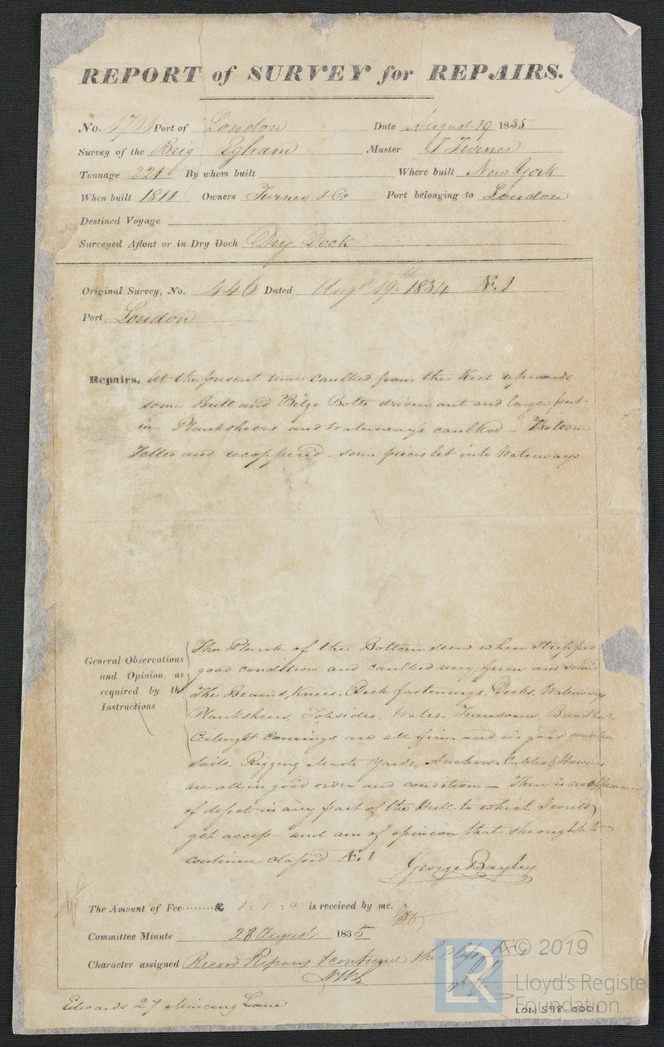 REPORT of SURVEY for REPAIRS.
No. Port of London Date August 19 1835
Survey of the Brig Egham Master Turner
Tonnage 221 By whom built Where built New York
When built 1811 Owners Turner & Co Port belonging to London
Destined Voyage
Surveyed Afloat or in Dry Dock Dry Dock
Original Survey, No. 446 Dated Augt 19th 1834 Æ.1
Port London
Repairs. At the present time caulked from the Keel upwards
some Butt and Bilge Bolts driven out and larger put
in Planksheers and Waterways caulked - Bottom
Felted and recoppered - some pieces let into Waterways.
General Observations and Opinion, as required by the Instructions
The Plank of the Bottom seen when stripped
good condition and caulked very firm and sound
The Beams, Knees, Deck fastenings, Decks, Waterways
Planksheers, Topsides, Wales, Transoms, Breasthooks
Comings are all firm and in good condition
Sails, Rigging Masts Yards, Anchors Cables & Hawsers
are all in good order and condition - There is no
of defects in any part of the Hull to which I could
get access and am of opinion that she ought to
continue classed Æ.1
George Bayley
The Amount of Fee........£ 1 : 1 : 0 is received by me.
Committee Minute 28 August 1835
Character assigned Record Repairs & continue the
© 2019
LR
Lloyd's Registe
Foundation
Edwards 27 Mincing Lane
LON 598-0001